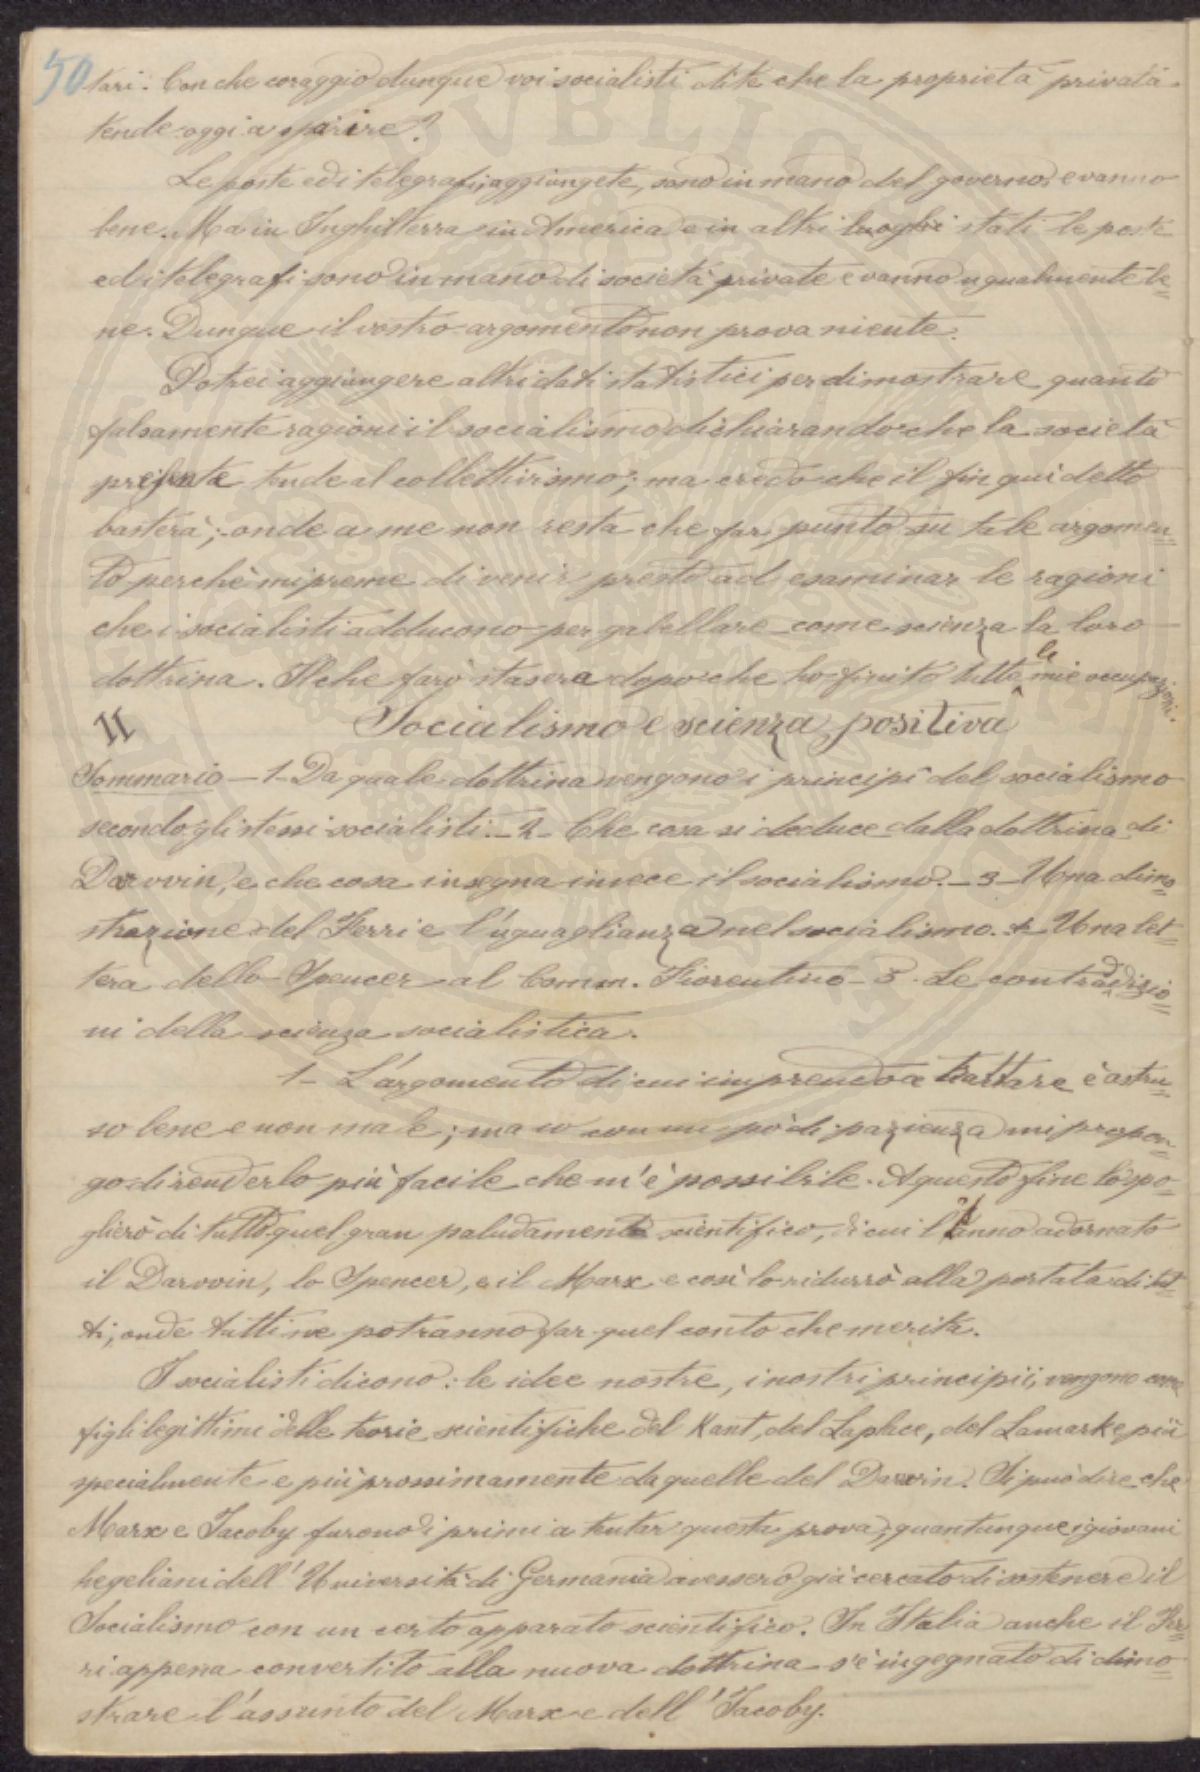 50 tari. Con che coraggio dunque voi socialisti dite che la proprietà privata
tende oggi a sparire?
Le poste ed i telegrafi, aggiungete, sono in mano del governo, e vanno
bene. Ma in Inghilterra in America e in altri luoghi stati le poste
ed i telegrafi sono in mano di società private e vanno ugualmente be=
ne. Dunque il vostro argomento non prova niente.
Potrei aggiungere altri dati statistici per dimostrare quanto
falsamente ragioni il socialismo dichiarando che la società
presente tende al collettivismo; ma credo che il fin qui detto
basterà; onde a me non resta che far punto su tale argomen=
to perchè mi preme di venir presto ad esaminar le ragioni
che i socialisti adducono per gabellare come scienza la loro
dottrina. Il che farò stasera dopo che ho finito tutte le mie occupazioni.
II Socialismo e scienza positiva
Sommario - 1- Da quale dottrina vengono i principi del socialismo
secondo gli stessi socialisti. - 2 - Che cosa si deduce dalla dottrina di
Darwin, e che cosa insegna invece il socialismo. - 3 - Una dimo=
strazione del Ferri e l'uguaglianza nel socialismo. 4- Una let=
tera dello Spencer al Comm. Fiorentino - 5. Le contraddizio=
ni della scienza socialistica.
1- L'argomento di cui imprendo a trattare è astru=
so bene e non male; ma io con un pò di pazienza mi propon=
go di renderlo più facile che m'è possibile. A questo fine lo spo=
glierò di tutto quel gran paludamento scientifico, di cui l'hanno adornato
il Darwin, lo Spencer, e il Marx e così lo ridurrò alla portata di tut=
ti, onde tutti ne potranno far quel conto che merita.
I socialisti dicono: le idee nostre, i nostri principii, vengono come
figli legittimi delle teorie scientifiche del Kant, del Laplace, del Lamark e più
specialmente e più prossimamente da quelle del Darwin. Si può dire che
Marx e Jacoby furono i primi a tentar questa prova, quantunque i giovani
hegeliani dell'Università di Germania avessero già cercato di sostenere il
Socialismo con un certo apparato scientifico. In Italia anche il Fer=
ri appena convertito alla nuova dottrina s'è ingegnato di dimo=
strare l'assunto del Marx e dell'Jacoby.